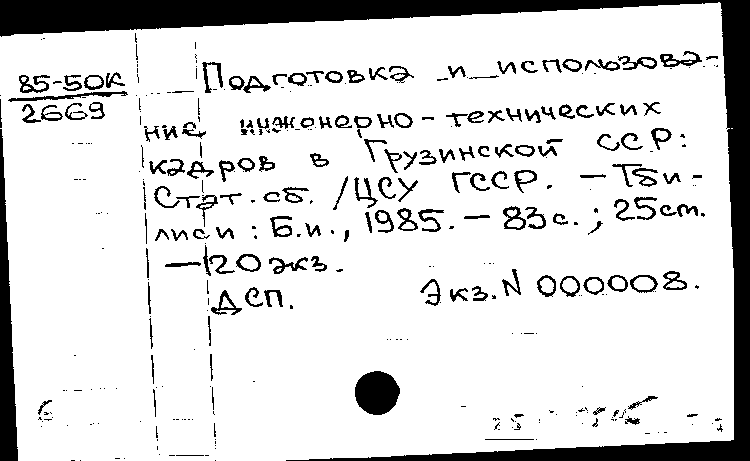 85-50К
2669
Подготовка и использова-
ние инженерно-технических
кадров в Грузинской ССР:
Стат. сб. /ЦСУ ГССР. — Тби-
лиси: Б.и., 1985. — 83с.; 25см.
— 120 экз.
ДСП. Экз. N 000008.
6